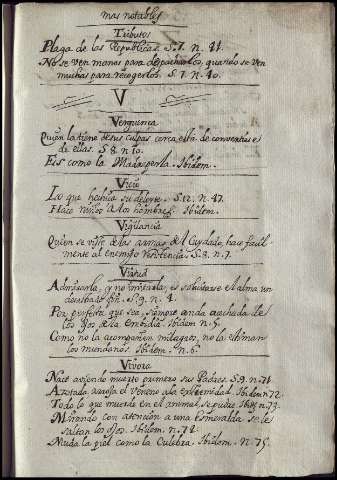 mas notables
Tributos
Plaga de las Republicas. S. 7. n. 41.
No se ven manos para despacharlos, quando se ven
muchas para recogerlos. S. 7. n. 40.
V
Verguenza
Quien la tiene de sus culpas cerca està de convertirse
de ellas. S. 8. n. 10.
Es como la Madre perla. Ibidem.
Vicio
La que hechiza su deleyte. S. 12. n. 47.
Hace niños a los hombres. Ibidem.
Vigilancia
Quien se viste de las armas del Cuydado, hace facil-
mente al enemigo resistencia. S. 8. n. 7.
Virtud
Admirarla, y no imitarla, es solicitarse el alma un
S. 9. n. 4.
Por perfecta que sea, siempre anda acechada de
los ojos de la embidia. Ibidem n. 5.
Como no la acompañen milagros, no la estiman
los mundanos. Ibidem. n. 6.
Vivora
Nace aviendo muerto primero sus Padres. S. 9. n. 71.
Azotada arroja el veneno a la extremidad. Ibidem n. 72.
Todo lo que muerde en el animal, se pudre. Ibid. n. 73.
Mirando con atención a una Esmeralda se le
saltan los ojos. Ibidem. n. 74.
Muda la piel como la Culebra. Ibidem. n. 75.